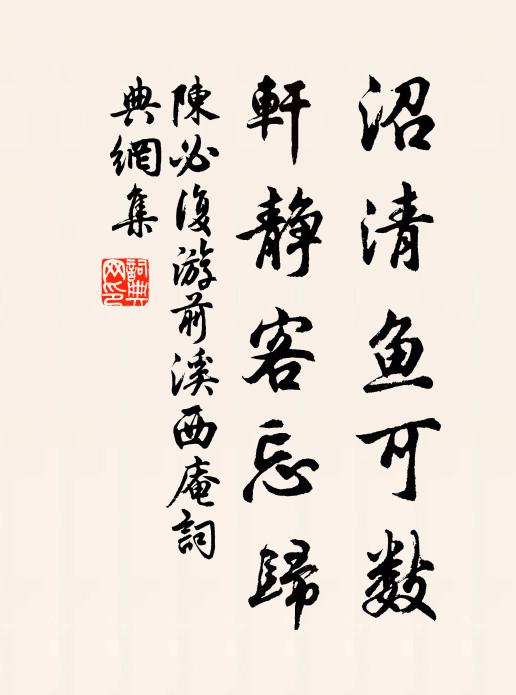 沼清鱼可数
軒静客忘歸
陳必復游前溪西庵詞
典網集
詞典
网印